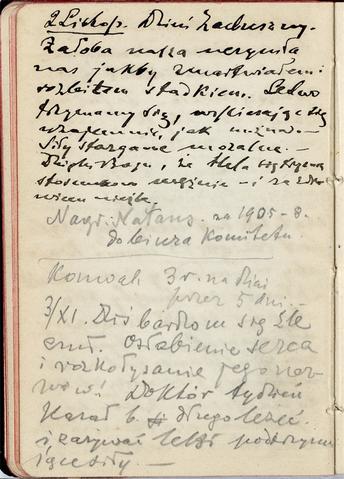 2 Listop. Dzień Zaduszny.
Żałoba nasza uczyniła
nas jakby zmartwiałem i
rozbitem stadkiem. Ledwo
trzymamy się,
wzajemnie, jak można.
Siły stargane moralne. —
Dzięki Bogu, że Hela się trzyma
stosunkowo nieźle — i za
Nagr. Natans. za 1905-8.
do biura Komitetu.
3 r. na dni
przez 5 dni. —
3/XI. Dziś bardzom się źle
czuł. Osłabienie serca
i rozkołysanie jego ner-
wów! Doktór tydzień
kazał b. długo leżeć
i zażywać leki podtrzymu
jące siły. —